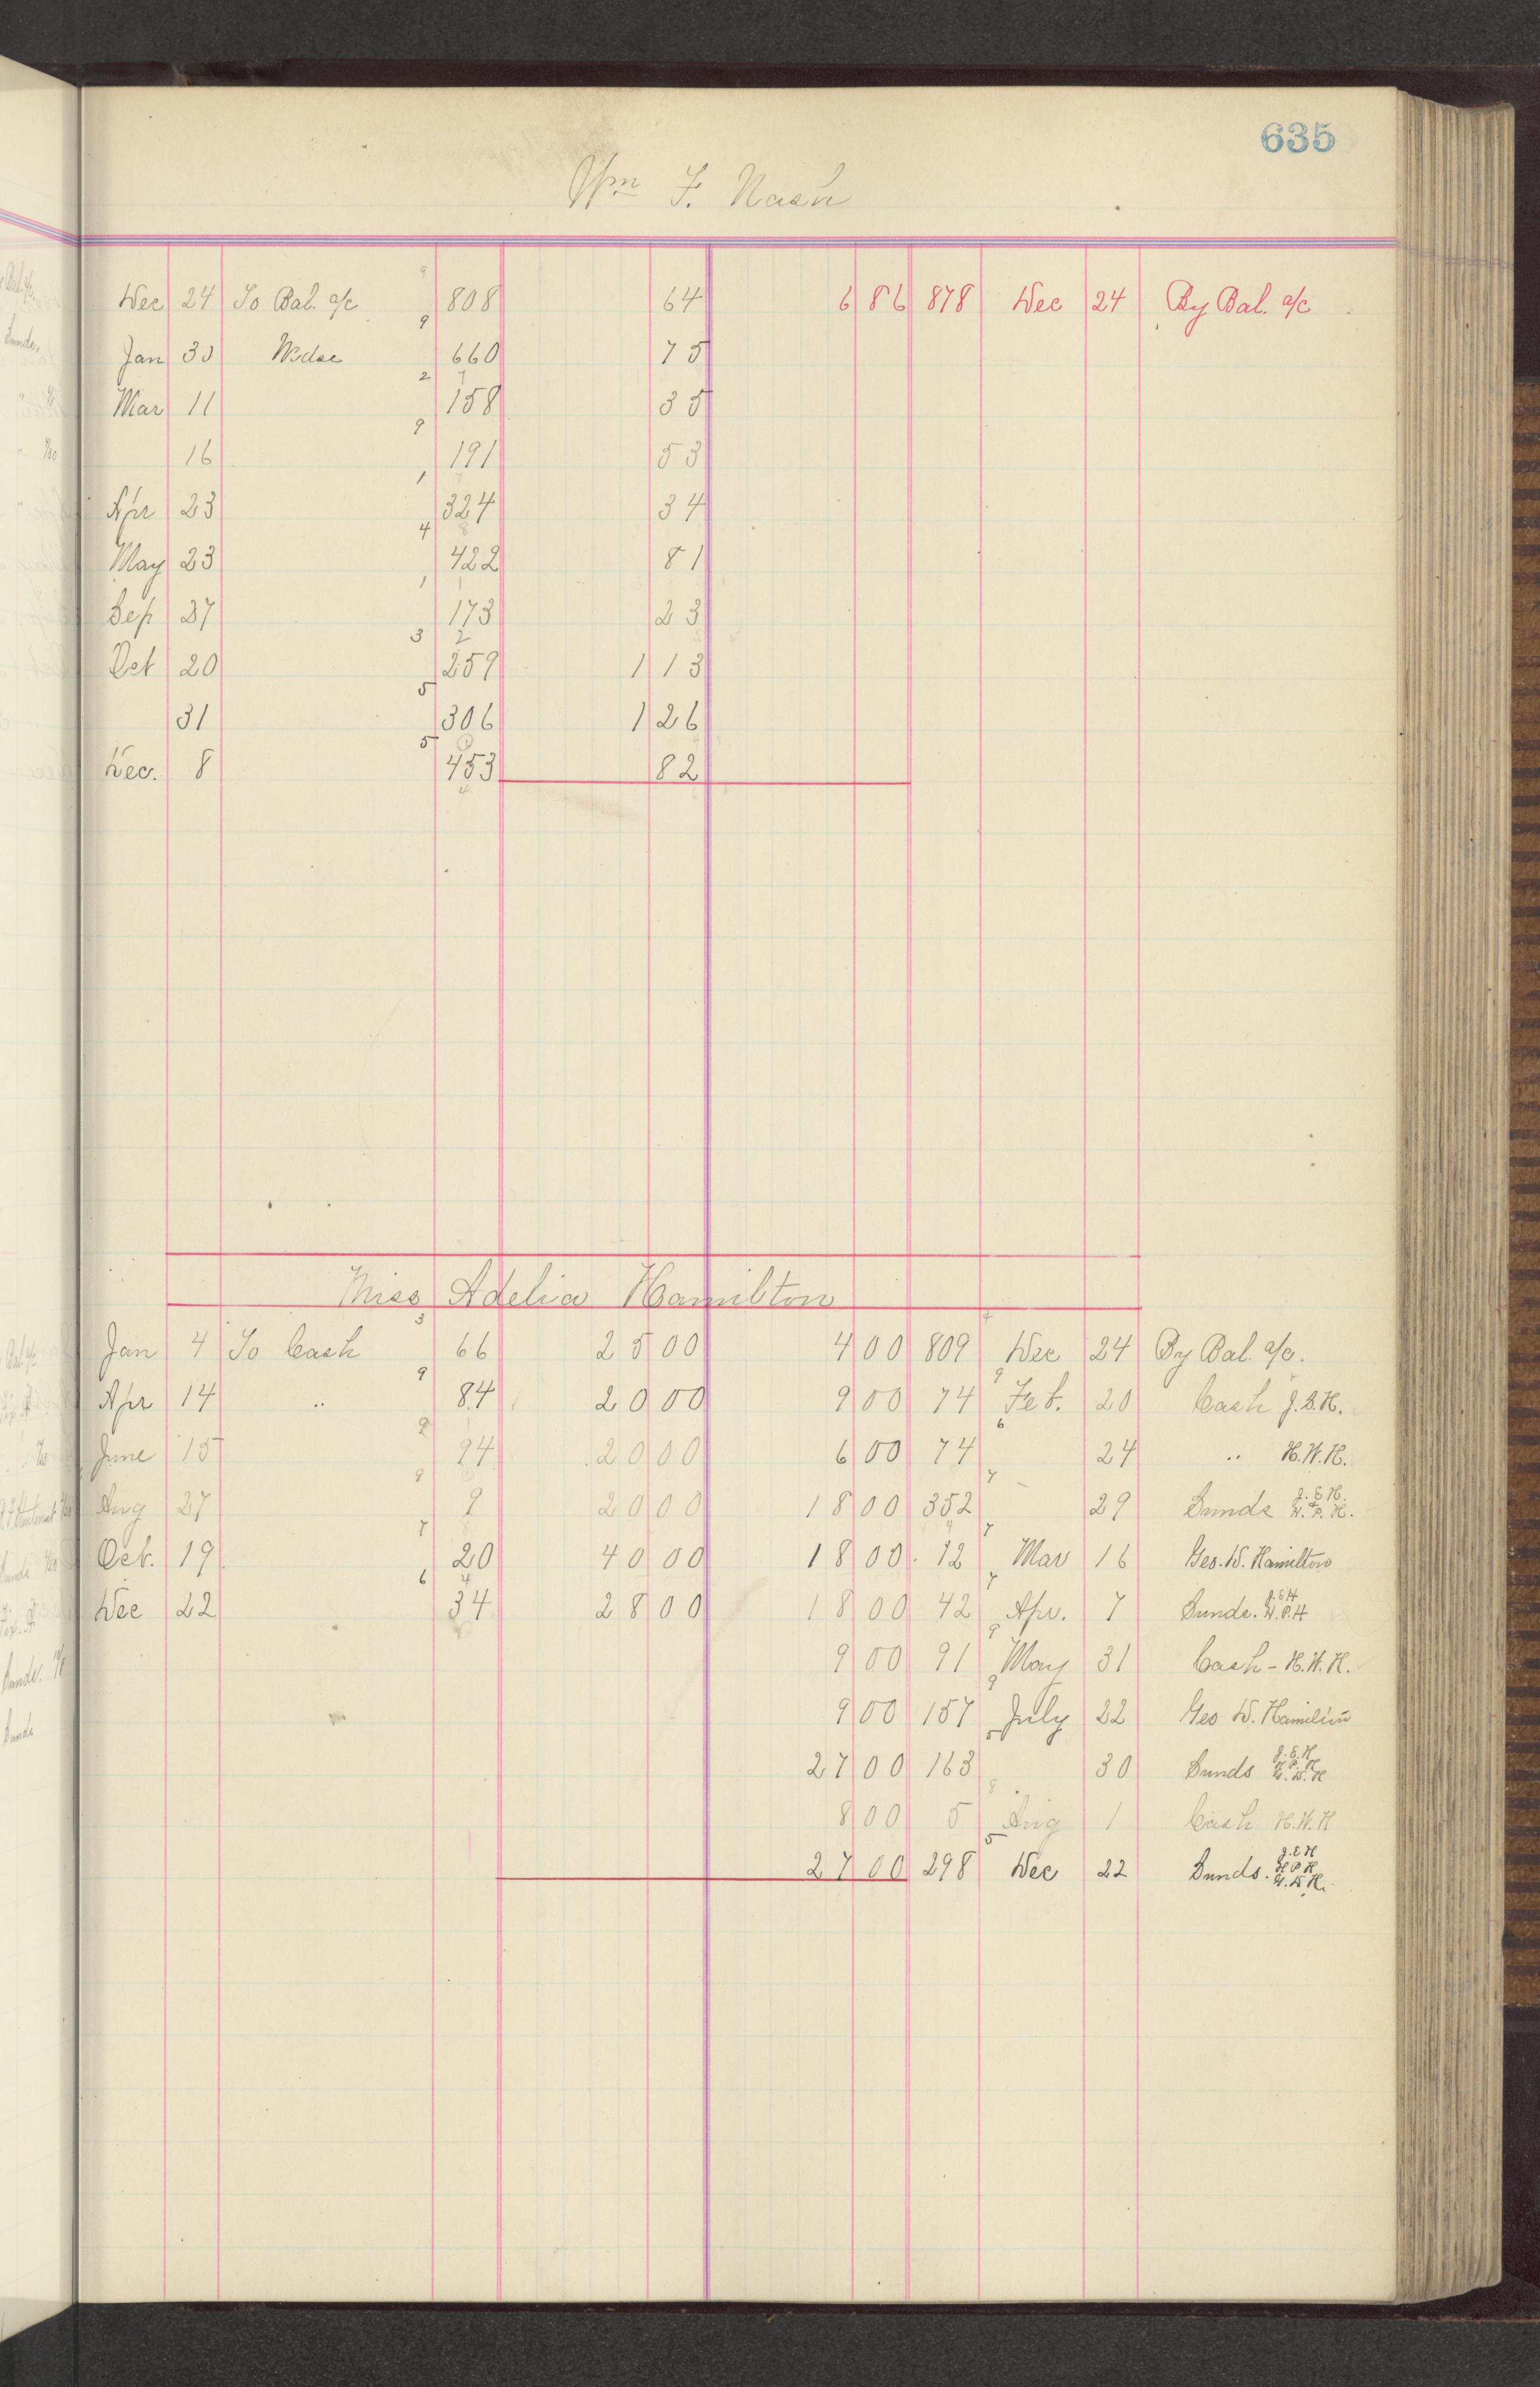 635
Wm F. Nash
Dec 24 To Bal. a/c 808 64 6 86 878 Dec 24 By Bal. a/c
Jan 30 Mdse 660 75
Mar 11 158 35
16 191 53
Apr 23 324 34
May 23 422 81
Sep 27 173 23
Oct 20 259 1 13
31 306 1 26
Dec. 8 453 82
Miss Adelia Hamilton
Jan 4 To Cash 66 25 00 4 00 809 Dec 24 By Bal. a/c.
Apr 14 " 84 20 00 9 00 74 Feb. 20 Cash J.E.H.
June 15 94 20 00 6 00 74 24 " H.W.H.
Aug 27 9 20 00 18 00 352 29 Sunds J.E.H. H.P.H.
Oct. 19 20 40 00 18 00 12 Mar 16 Geo. W. Hamilton
Dec 22 34 28 00 18 00 42 Apr. 7 Sunds. J.E.H H.P.H
9 00 91 May 31 Cash - H.W.H.
9 00 157 July 22 Geo W. Hamilton
27 00 163 30 Sunds J.E.H H.P.H G.W.H
8 00 5 Aug 1 Cash H.W.H
27 00 298 Dec 22 Sunds. J.E.H H.P.H G.W.H.